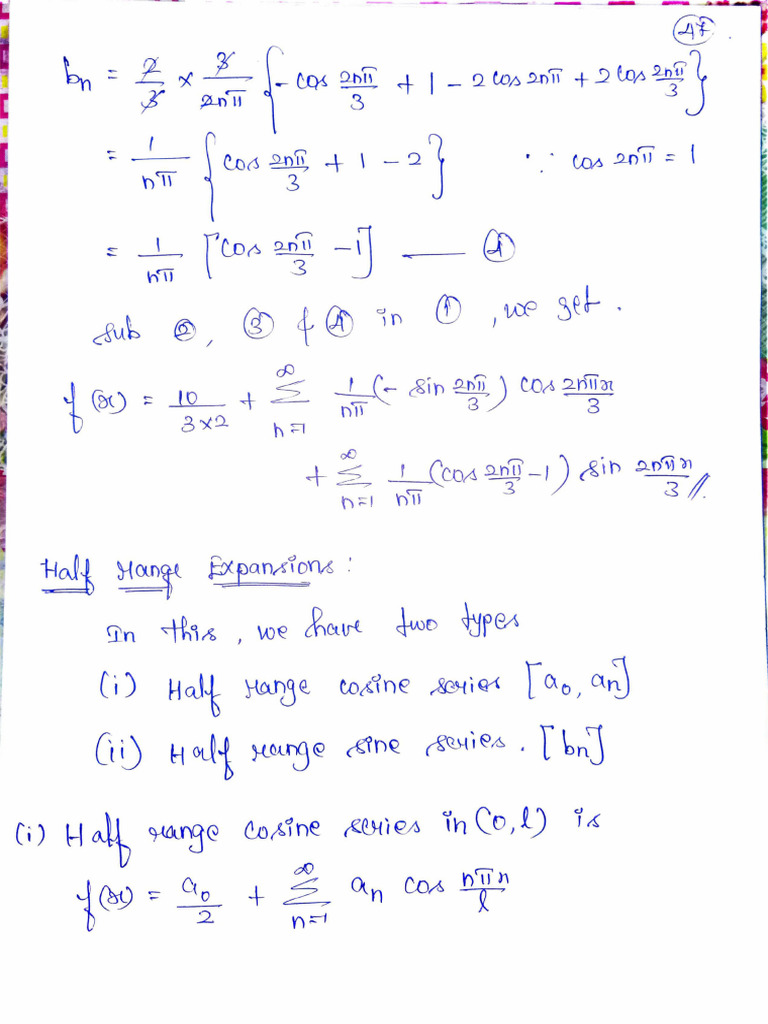 47
bn = 2/3 × 3/2nπ { - cos 2nπ/3 + 1 - 2 cos 2nπ + 2 cos 2nπ/3 }
= 1/nπ { cos 2nπ/3 + 1 - 2 } ∵ cos 2nπ = 1
= 1/nπ [ cos 2nπ/3 - 1 ] —— ④
sub ②, ③ & ④ in ①, we get.
f(x) = 10/3×2 + ∞Σn=1 1/nπ (- sin 2nπ/3) cos 2nπx/3
+ ∞Σn=1 1/nπ (cos 2nπ/3 - 1) sin 2nπx/3 //.
Half Range Expansions:
In this, we have two types
(i) Half range cosine series [a0, an]
(ii) Half range sine series. [bn]
(i) Half range cosine series in (0, l) is
f(x) = a0/2 + ∞Σn=1 an cos nπx/l